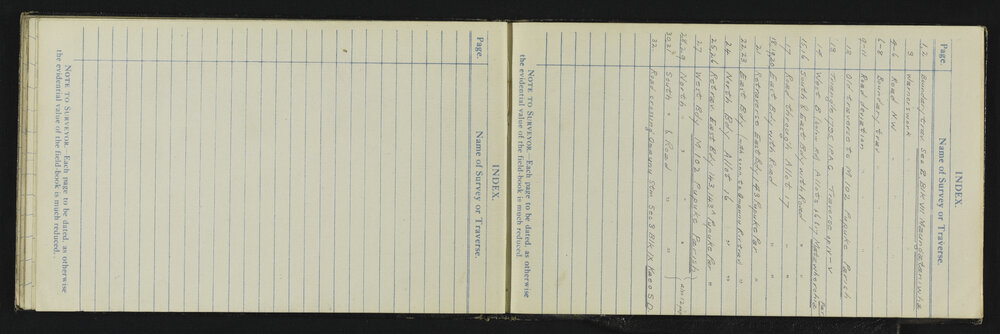 INDEX.
Page. Name of Survey or Traverse.
1, 2 Boundary trav. Sec 2 Blk VII Maungataniwha
3 Warners work "
4-6 Road N.W. "
6-8 Boundary trav.
9-11 Road deviation "
12 Old traverse to M 102 Pupuke Parish
13 Triangles Traverse
14 West B. Allots 16
15, 16 South & East Bdy with Road "
17 Road through Allot 17 "
18, 19, 20 East Bdy with Road "
21 Retraverse East Bdy 143 Pupuke Par
22, 23 East Bdy "
24 North Bdy Allot 16 "
25, 26 Retrav. East Bdy 143, 143A Pupuke Par
27 West Bdy M. 102 Pupuke Parish
28, 29 North " "
30, 31 South " & Road "
32 Road crossing Stm Sec 3 Blk IX Kaeo S.D
NOTE TO SURVEYOR.—Each page to be dated, as otherwise
the evidential value of the field-book is much reduced.
INDEX.
Page. Name of Survey or Traverse.
NOTE TO SURVEYOR.—Each page to be dated, as otherwise
the evidential value of the field-book is much reduced.